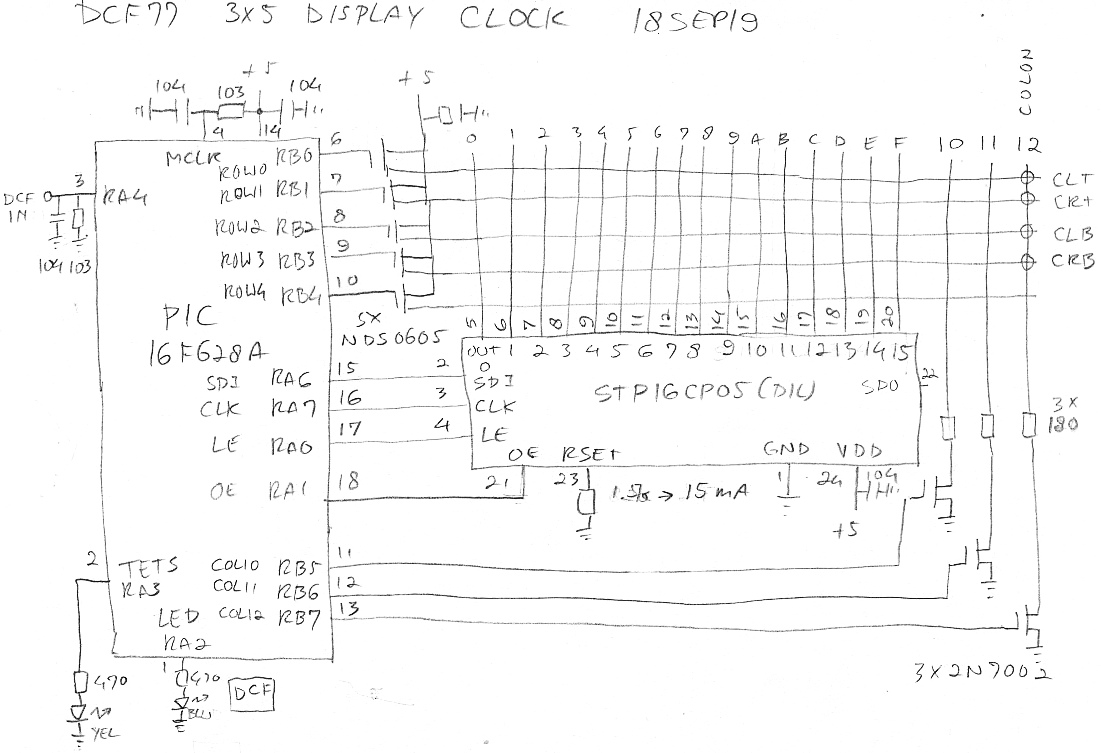 DCF77 3X5 DISPLAY CLOCK 18SEP19
COLON
+5
104 103 104
4 14
+5
0 1 2 3 4 5 6 7 8 9 A B C D E F 10 11 12
MCLR
DCF IN
3 RA4
104 103
ROW0 RB0 6
ROW1 RB1 7
ROW2 RB2 8
ROW3 RB3 9
ROW4 RB4 10
CLT
CRT
CLB
CRB
PIC
16F628A
5X
NDS0605
5 6 7 8 9 10 11 12 13 14 15 16 17 18 19 20
OUT 1 2 3 4 5 6 7 8 9 10 11 12 13 14 15
0
SDI RA6 15 2 SDI
CLK RA7 16 3 CLK
LE RA0 17 4 LE
STP16CP05 (DIL)
SDO 22
3X
180
OE RSET GND VDD
OE RA1 18
21 23 1 24 104
→ 15mA
+5
2 TETS
RA3
COL10 RB5 11
COL11 RB6 12
LED COL12 RB7 13
RA2
1
470 YEL
470 BLU
DCF
3X2N7002